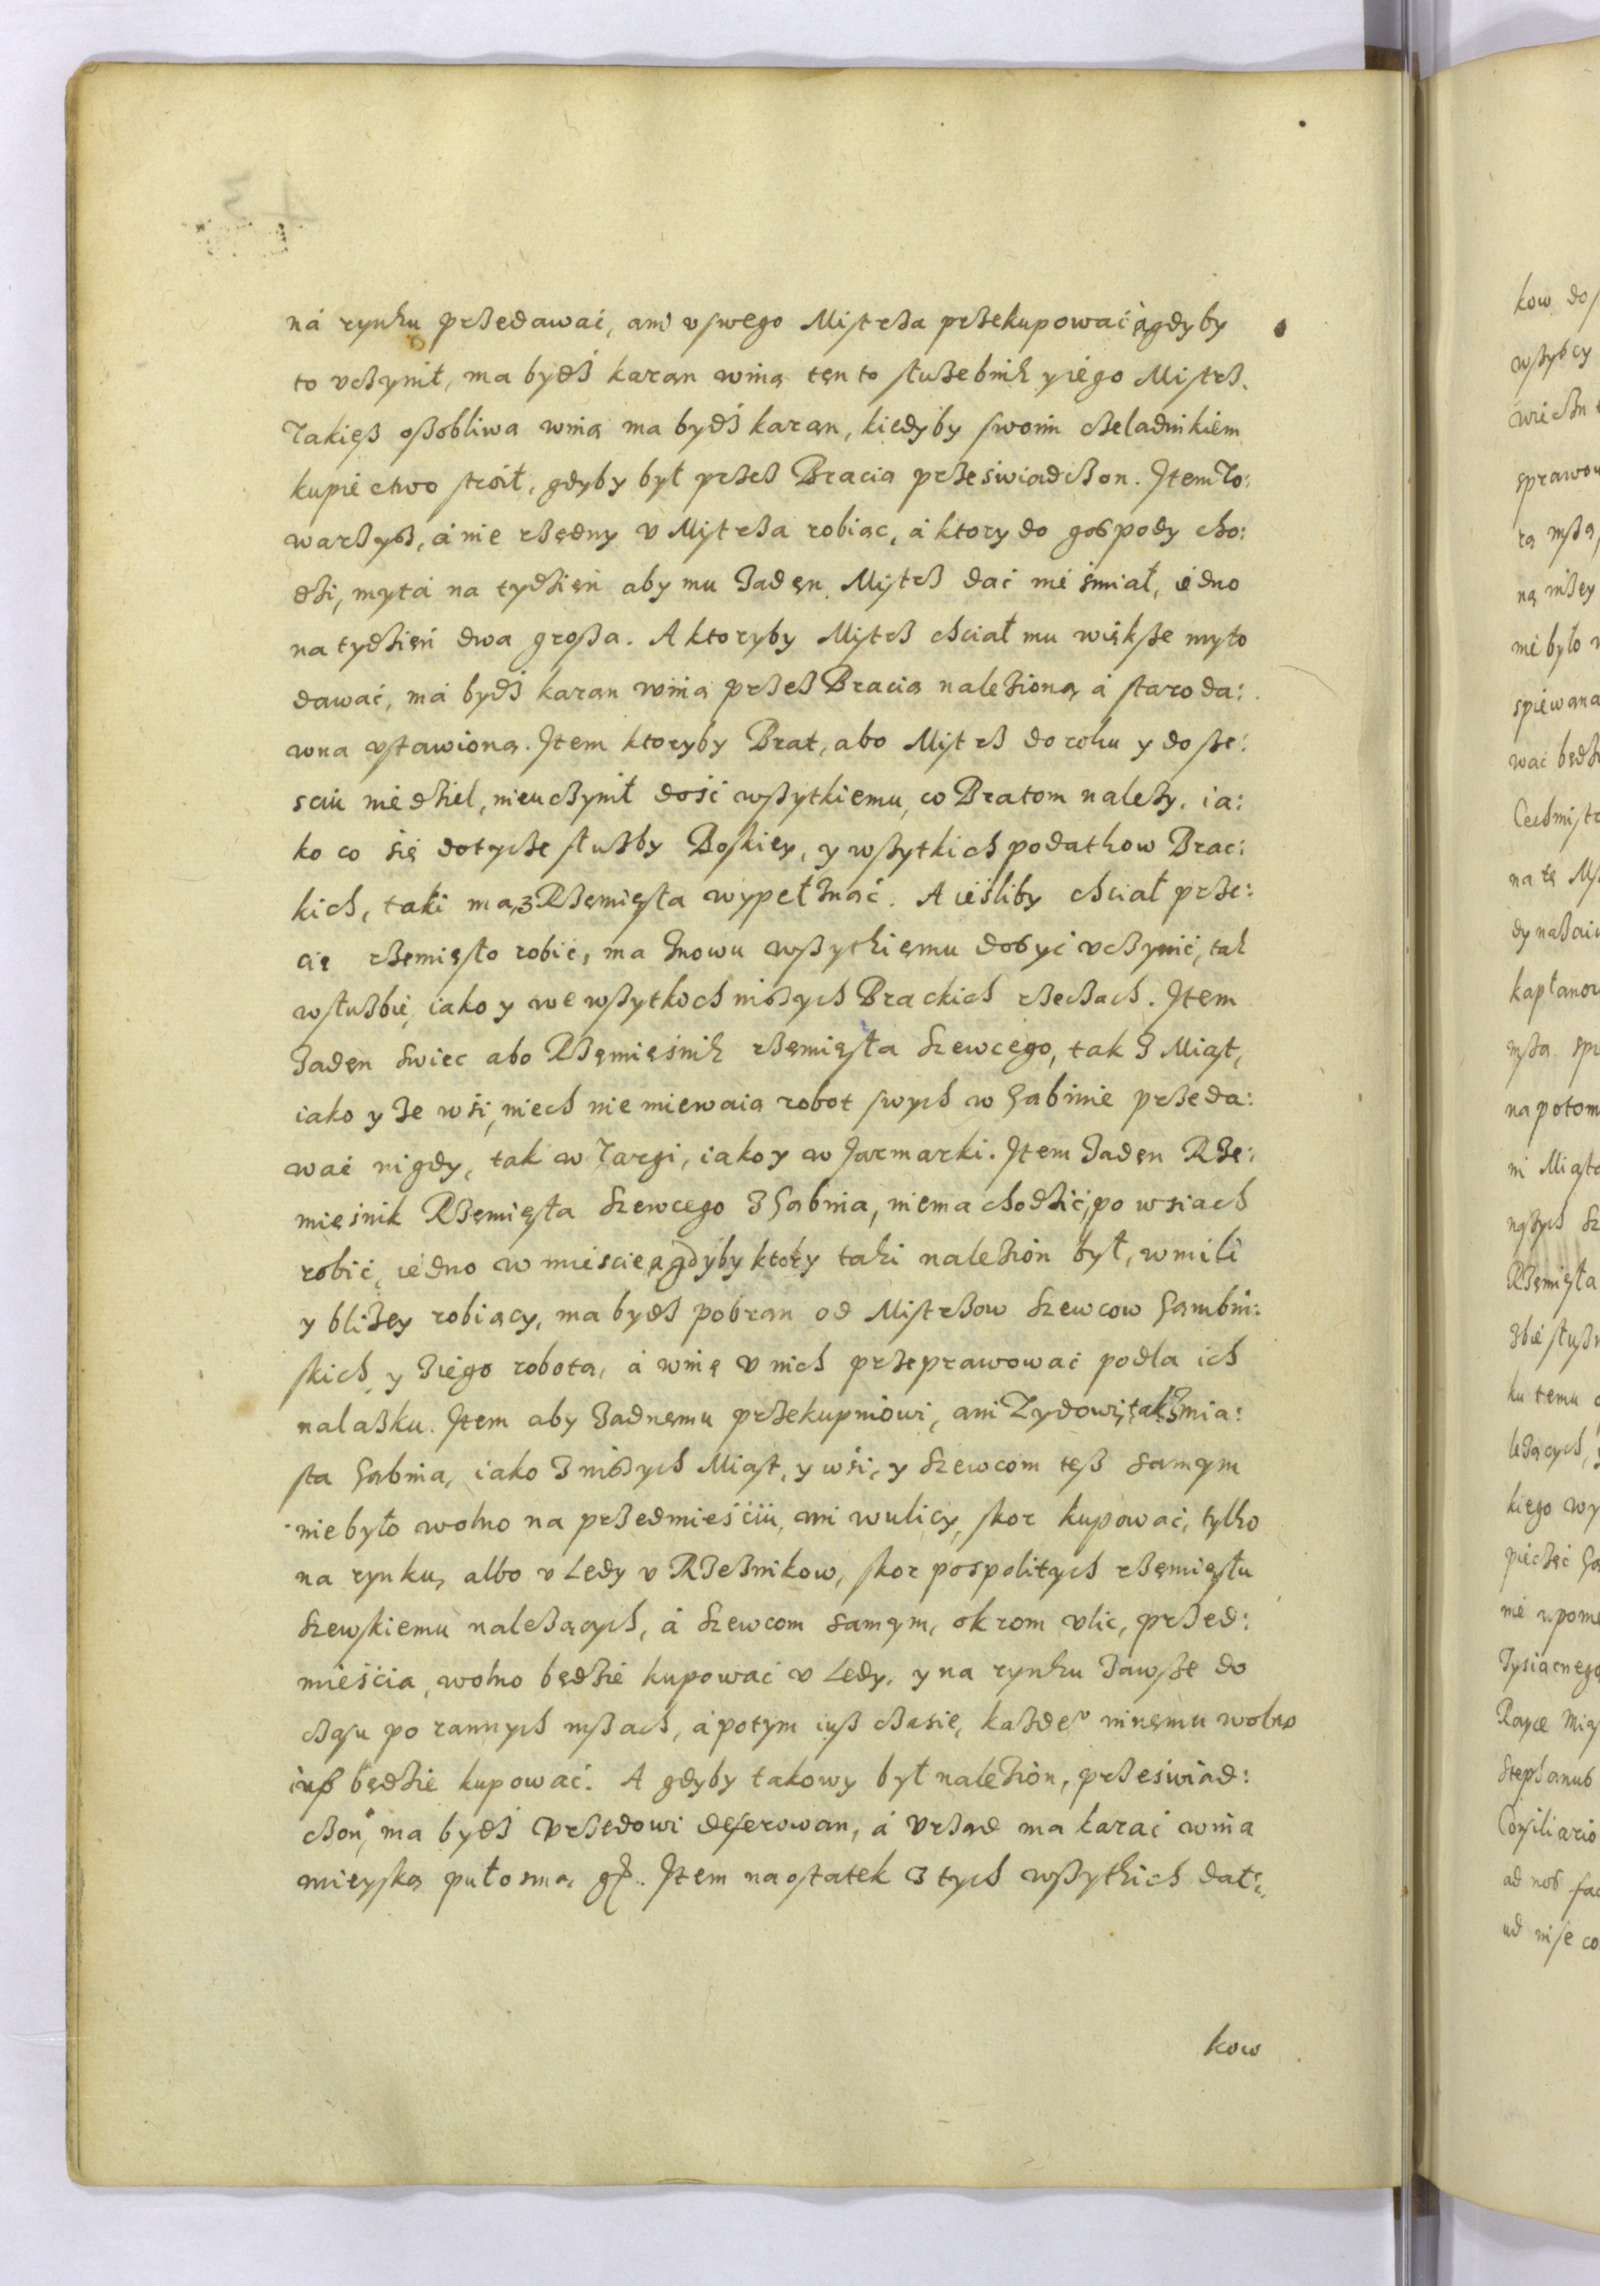 ná rynku przedawać, ani v swego Mistrza przekupować, á gdyby
to vczynił, ma bydź karan winą ten to służebnik y iego Mistrz.
Takięż osobliwą winą ma bydź karan, kiedyby swoim czeladnikiem
kupiectwo stroił, gdyby był przez Bracią przeświadczon. Item To:
warzysz, á nie rzędny v Mistrza robiąc, á ktory do gospody cho:
dzi, mytá na tydzięń aby mu żadęn Mistrz dać nie śmiał, iedno
na tydzień dwa grosza. A ktoryby Mistrz chciał mu większe myto
dawać, má bydź karan winą przez Bracią nalezioną á staroda:
wną vstawioną. Item ktoryby Brat, abo Mistrz do roku y do sze:
sciu niedziel, nieuczynił dość wszytkiemu, co Bratom należy, ia:
ko co się dotycze służby Boskiey, y wszytkich podatkow Brac:
kich, taki ma z Rzęmięsła wypełznąć. A ieśliby chciał prze:
cię rzemięsło robić, ma znowu wszytkięmu dosyć vczynić, tak
w służbie, iako y we wszytkich nszych Brackich rzeczach. Item
żadęn swiec abo Rzęmięśnik rzęmięsła szewcego, tak z Miast,
iako y ze wśi, niech nie miewaią robot swych w Gabinie przeda:
wać nigdy, tak w Targi, iako y w Jarmarki. Item żadęn Rze:
mięśnik Rzęmięsła szewcego z Gabina, niema chodzić po wsiach
robić, iedno w mieście, á gdyby ktory taki nalezion był, w mili
y bliżey robiący, ma bydź pobran od Mistrzow szewcow Gambin:
skich y z iego robotą, á winę v nich przeprawować podla ich
nalasku. Item aby żadnęmu przekupniowi, ani Zydowi, tak z mia:
sta Gabina, iako z nszych Miast, y wśi, y szewcom też samym
niebyło wolno na przedmieściu, ani w ulicy, skor kupować, tylko
na rynku, albo v Ledy v Rzeźnikow, skor pospolitych rzęmięsłu
szewskiemu należących, á szewcom samym, okrom vlic, przed:
mieścia, wolno będzie kupować v Ledy, y na rynku zawsze do
czasu po rannych mszach, á potym iusz czasie, każdeo innęmu wolno
iusz będzie kupować. A gdyby takowy był nalezion, przeświad:
czon, ma bydź Vrzędowi deferowan, á Vrząd ma karać winą
mieyską puł osma, gr. Item naostatek z tych wszytkich dat:
kow